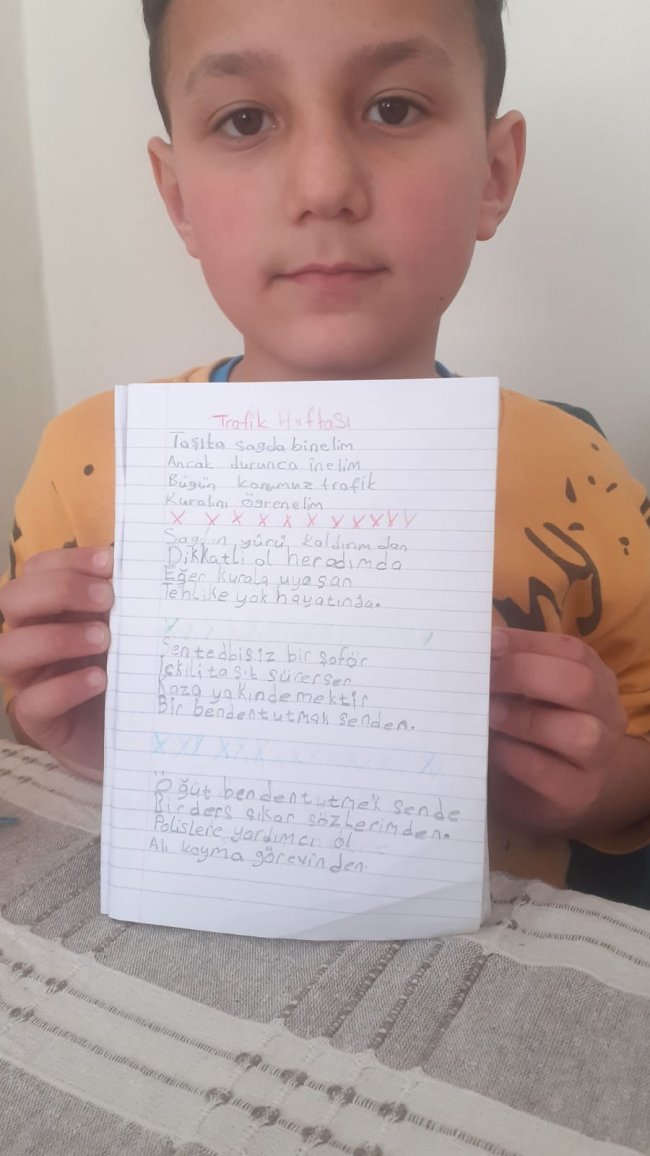 Trafik Haftası
Taşıta sağda binelim
Ancak durunca inelim
Bügün konmuz trafik
Kuralını öğrenelim
X X X X X X X X X X X
Sağdan yürü kaldırımdan
Dikkatli ol heradımda
Eğer kurala uyasan
Tehlike yok hayatında.
Sentedbisiz bir şoför
İçkili taşıt sürersen
Kaza yakındemektir
Bir bendentutmak senden.
Öğüt bendentutmek sende
Birders sıkar sözlerimden.
Polislere yardımcı ol
Alı koyma görevinden.